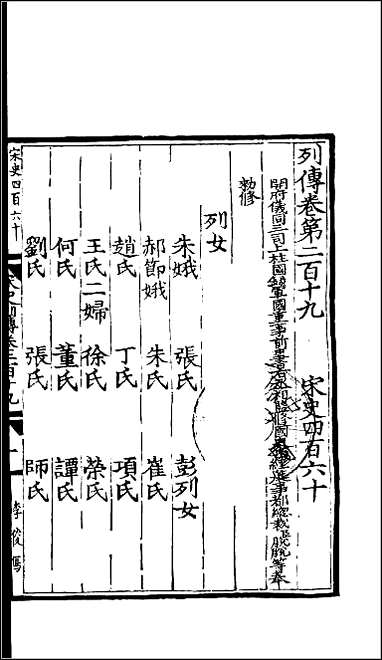 列傳卷第二百十九　宋史四百六十
開府儀同三司上柱國錄軍國重事前中書右丞相監修國史領經筵事都總裁臣脫脫等奉
勑修
列女
朱娥　張氏　彭列女
郝節娥　朱氏　崔氏
趙氏　丁氏　項氏
王氏二婦　徐氏　榮氏
何氏　董氏　譚氏
劉氏　張氏　師氏
宋史四百六十
列傳卷二百十九
一